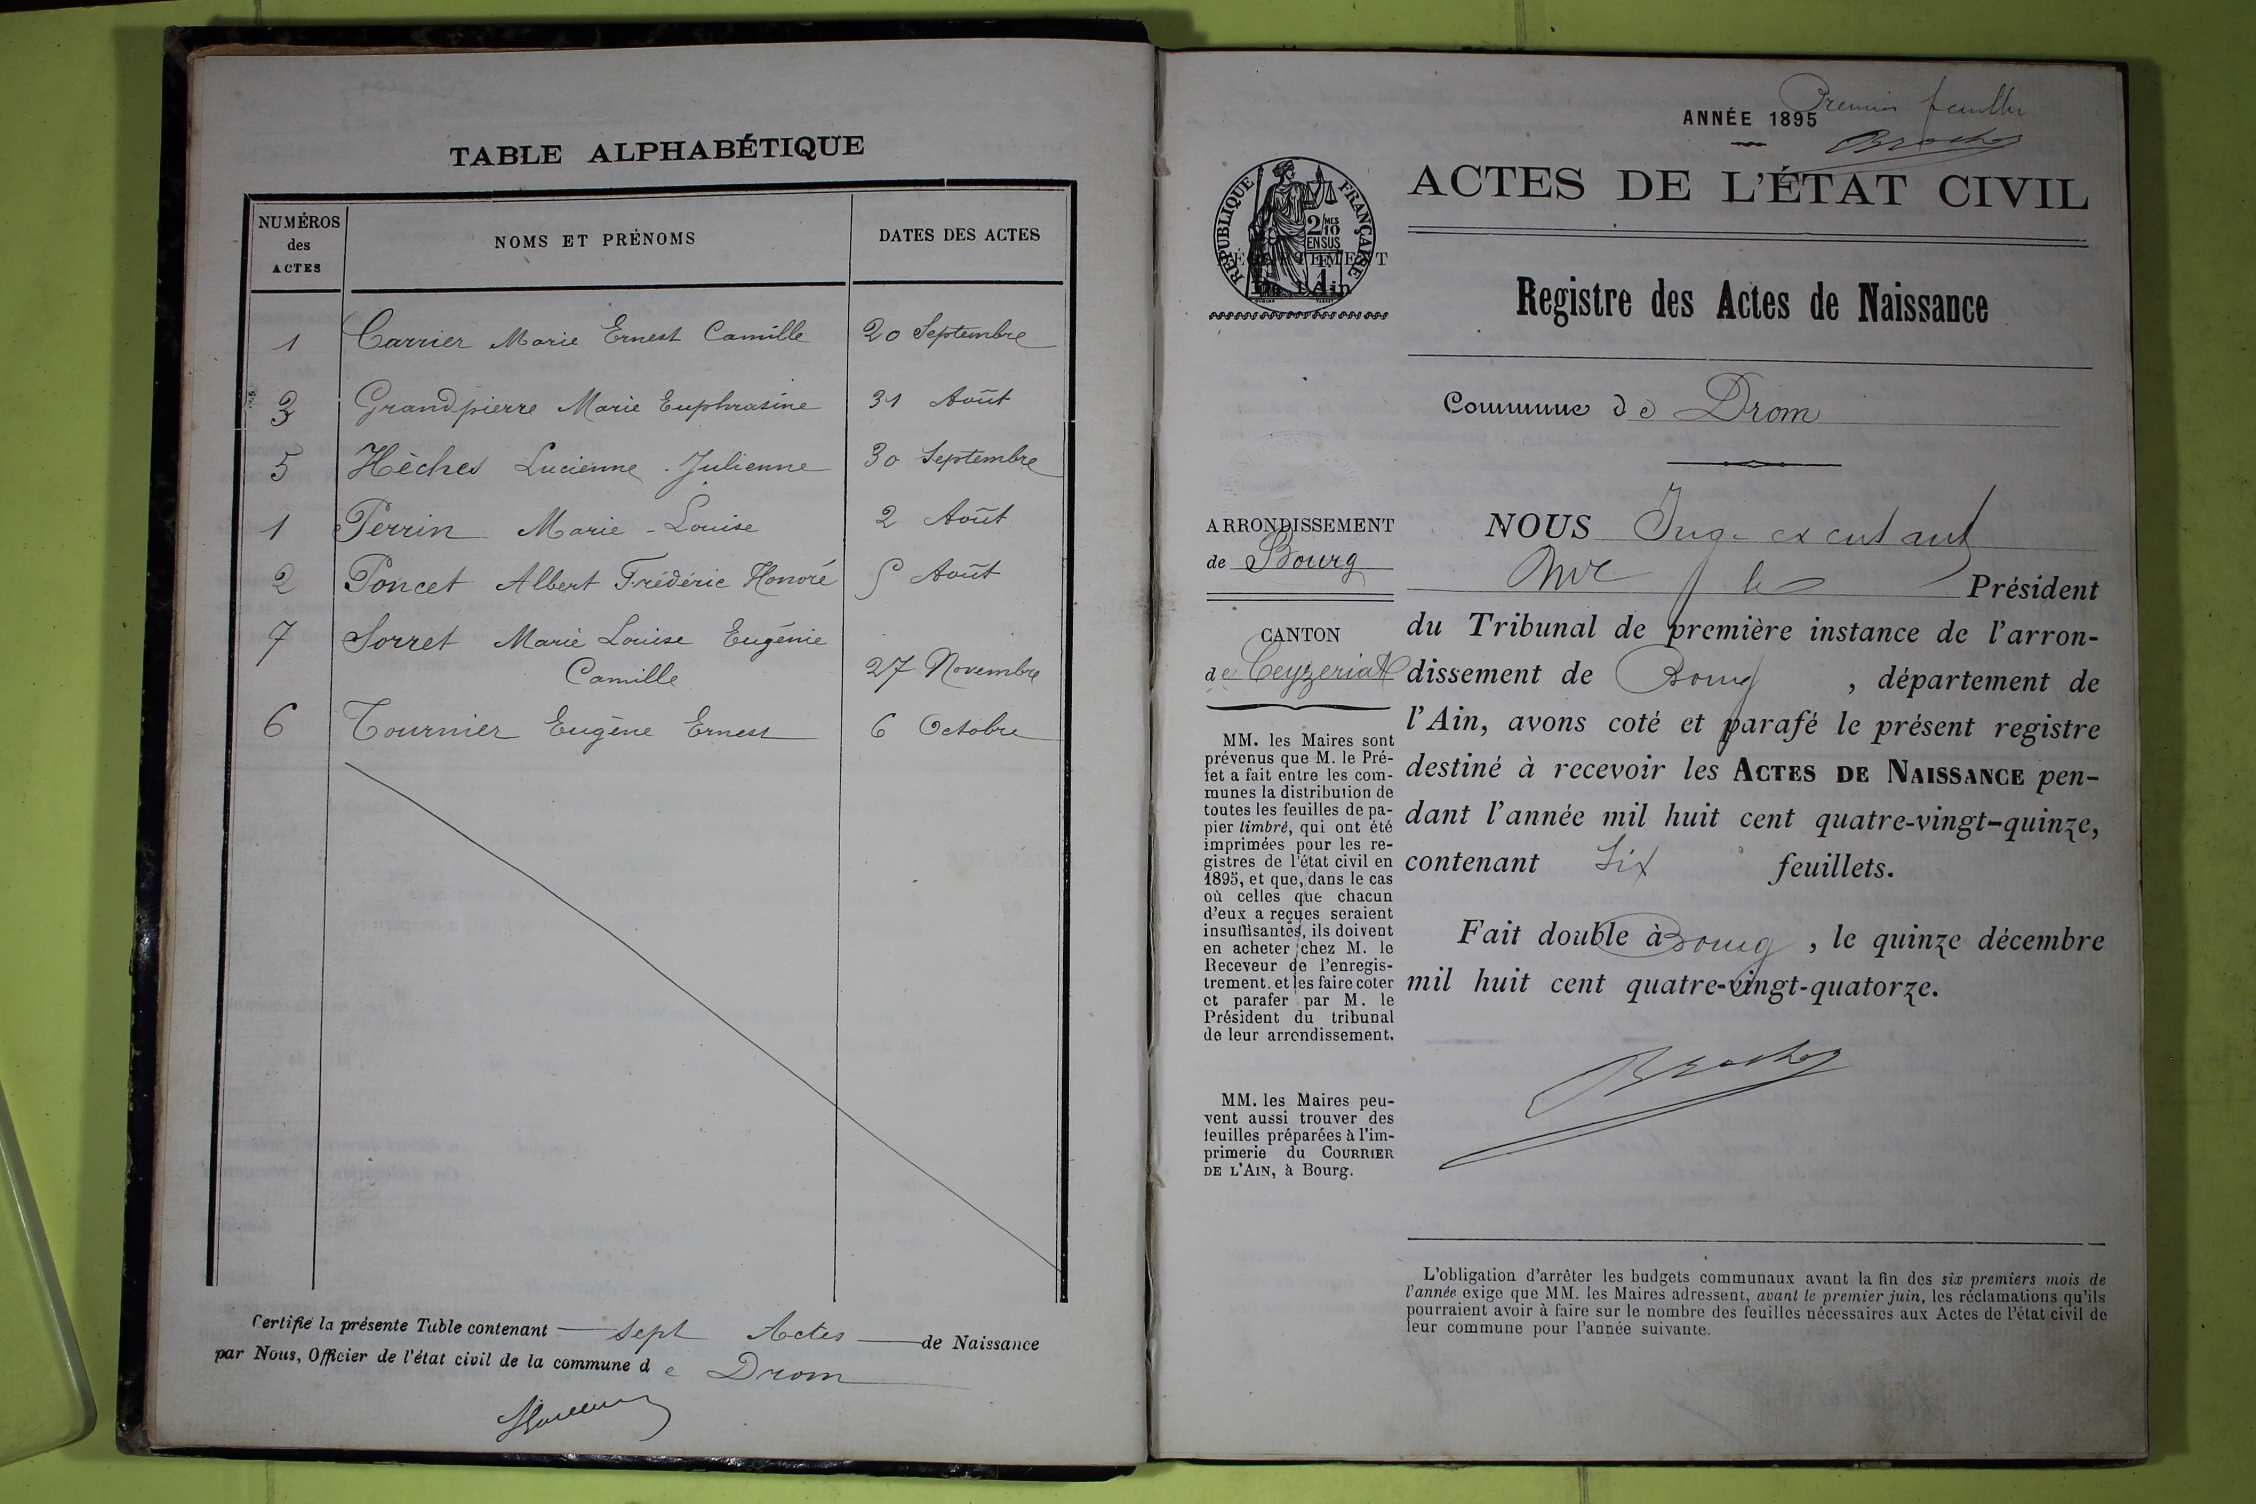 TABLE ALPHABÉTIQUE
NUMÉROS des ACTES NOMS ET PRÉNOMS DATES DES ACTES
1 Carrier Marie Ernest Camille 20 Septembre
3 Grandpierre Marie Euphrasine 31 Août
5 Hèches Lucienne - Julienne 30 Septembre
1 Perrin Marie - Louise 2 Août
2 Poncet Albert Frédéric Honoré 5 Août
7 Sorret Marie Louise Eugénie
Camille 27 Novembre
6 Tournier Eugène Ernest 6 Octobre
Certifié la présente Table contenant sept Actes de Naissance
par Nous, Officier de l'état civil de la commune de Drom
Premier feuillet
ANNÉE 1895
ACTES DE L'ÉTAT CIVIL
RÉPUBLIQUE FRANÇAISE
2/10 MES
EN SUS
DÉPARTEMENT
De l'Ain
Registre des Actes de Naissance
Commune de Drom
ARRONDISSEMENT
de Bourg
CANTON
de Ceyzeriat
MM. les Maires sont
prévenus que M. le Pré-
fet a fait entre les com-
munes la distribution de
toutes les feuilles de pa-
pier timbré, qui ont été
imprimées pour les re-
gistres de l'état civil en
1895, et que, dans le cas
où celles que chacun
d'eux a reçues seraient
insuffisantes, ils doivent
en acheter chez M. le
Receveur de l'enregis-
trement, et les faire coter
et parafer par M. le
Président du tribunal
de leur arrondissement.
MM. les Maires peu-
vent aussi trouver des
feuilles préparées à l'im-
primerie du COURRIER
DE L'AIN, à Bourg.
NOUS Juge
le Président
du Tribunal de première instance de l'arron-
dissement de Bourg, département de
l'Ain, avons coté et parafé le présent registre
destiné à recevoir les ACTES DE NAISSANCE pen-
dant l'année mil huit cent quatre-vingt-quinze,
contenant Six feuillets.
Fait double à Bourg, le quinze décembre
mil huit cent quatre-vingt-quatorze.
L'obligation d'arrêter les budgets communaux avant la fin des six premiers mois de
l'année exige que MM. les Maires adressent, avant le premier juin, les réclamations qu'ils
pourraient avoir à faire sur le nombre des feuilles nécessaires aux Actes de l'état civil de
leur commune pour l'année suivante.